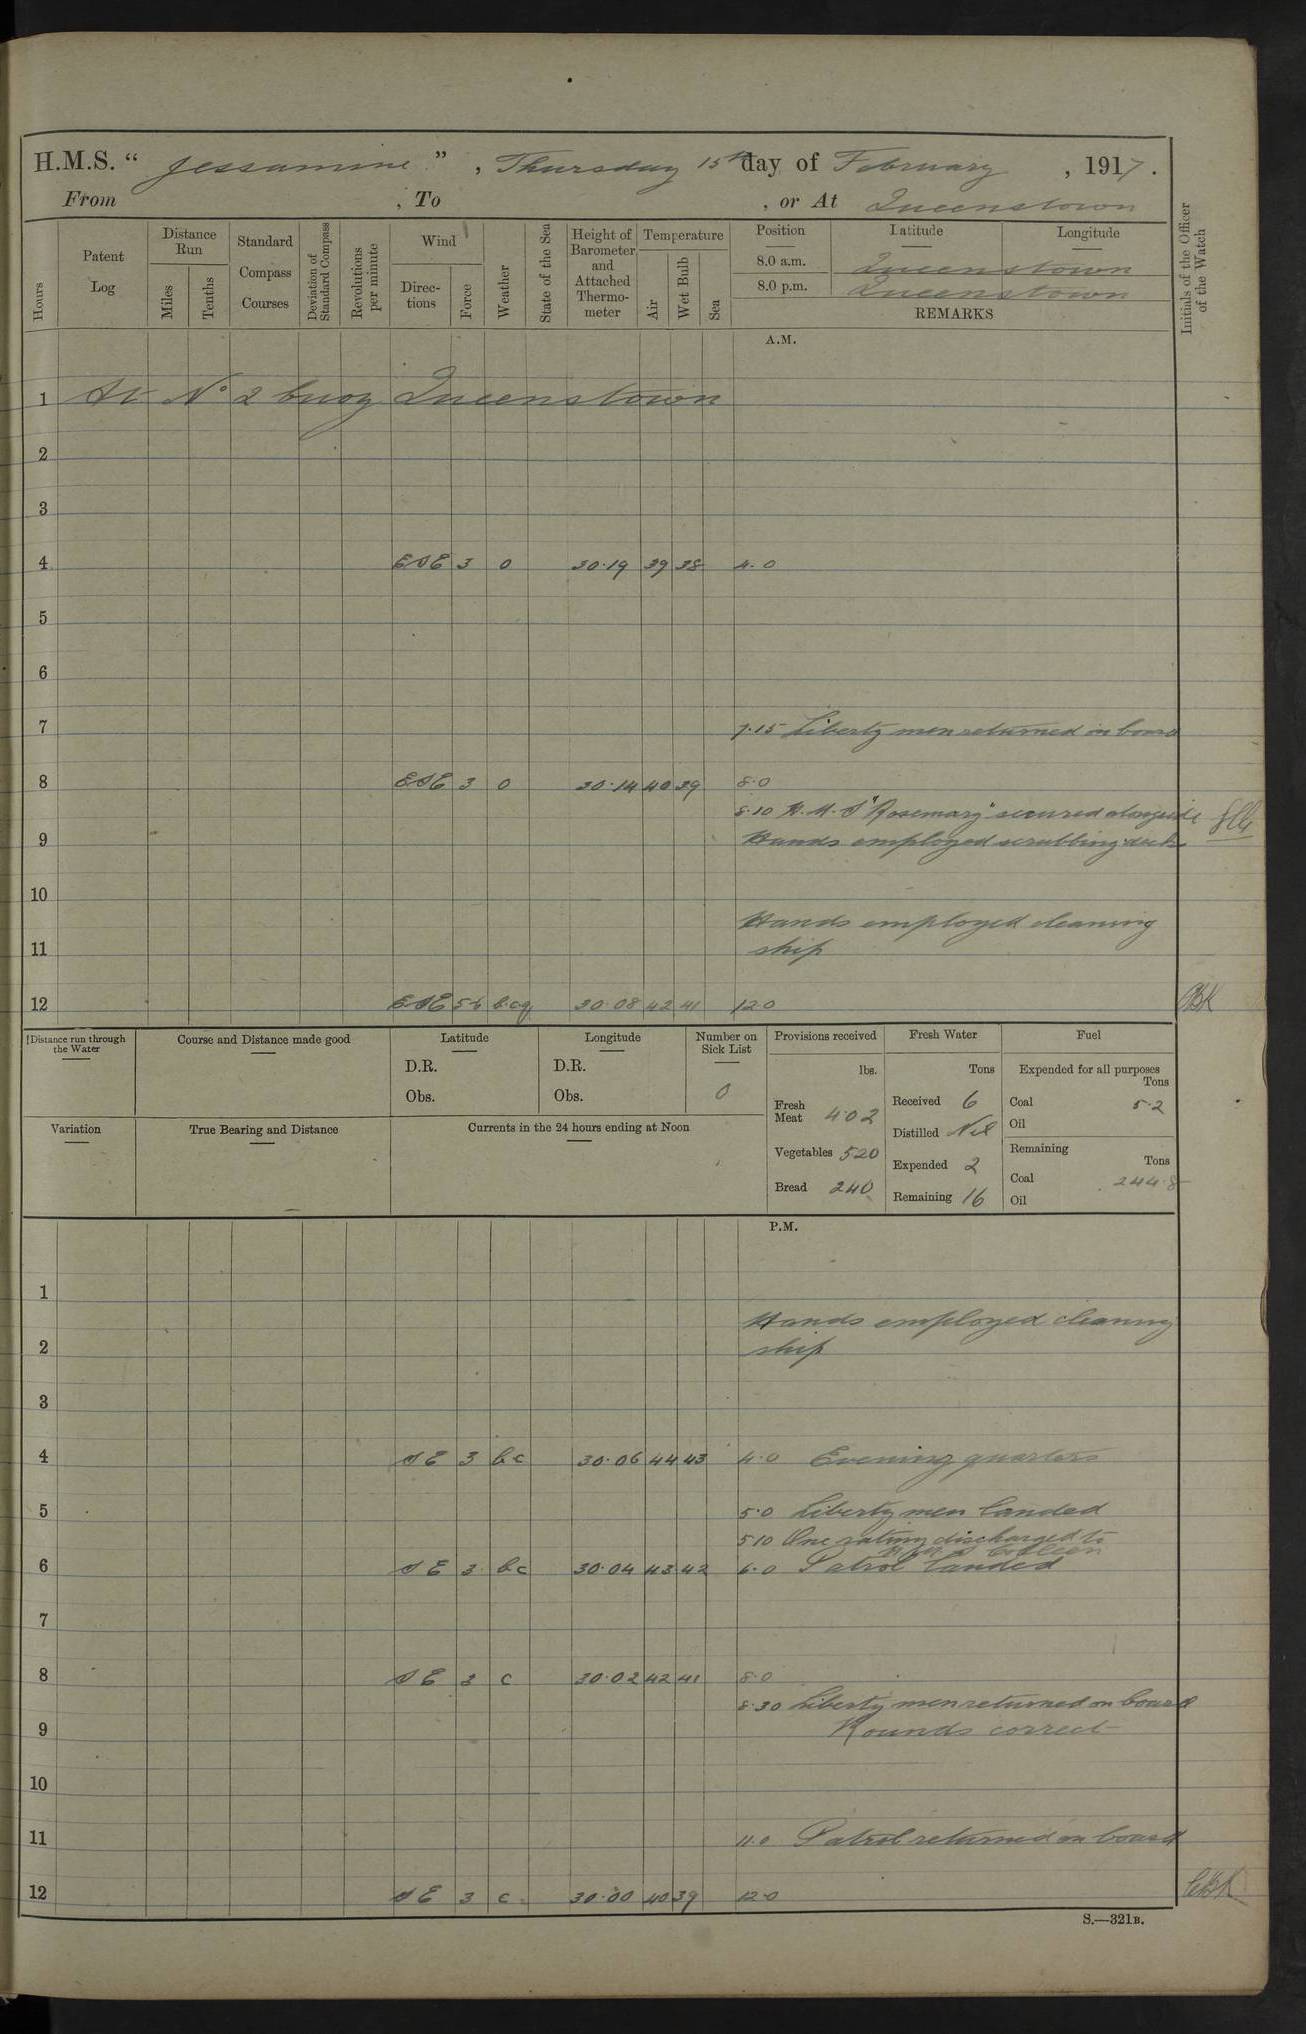 H.M.S. “ Jessamine ” , Thursday 15th day of February , 1917.
From , To , or At Queenstown
Hours
Patent Log
Distance Run
Miles
Tenths
Standard Compass Courses
Deviation of Standard Compass
Revolutions per minute
Wind
Direc-tions
Force
Weather
State of the Sea
Height of Barometer and Attached Thermo-meter
Temperature
Air
Wet Bulb
Sea
Position Latitude Longitude
8.0 a.m. Queenstown
8.0 p.m. Queenstown
REMARKS
Initials of the Officer of the Watch
A.M.
1 At No 2 buoy Queenstown
2
3
4 ESE 3 o 30.19 39 38 4.0
5
6
7 7.15 Liberty men returned on board
8 ESE 3 o 30.14 40 39 8.0
8.10 H.M.S "Rosemary" secured alongside
9 Hands employed scrubbing deck
10
Hands employed cleaning
11 ship
12 ESE 5-6 b.c.q 30.08 42 41 12.0
Distance run through the Water
Course and Distance made good
Latitude
D.R.
Obs.
Longitude
D.R.
Obs.
Number on Sick List
0
Variation
True Bearing and Distance
Currents in the 24 hours ending at Noon
Provisions received
lbs.
Fresh Meat 402
Vegetables 520
Bread 240
Fresh Water
Tons
Received 6
Distilled Nil
Expended 2
Remaining 16
Fuel
Expended for all purposes
Tons
Coal 5.2
Oil
Remaining
Tons
Coal 244.8
Oil
P.M.
1
Hands employed cleaning
2 ship
3
4 SE 3 bc 30.06 44 43 4.0 Evening quarters
5 5.0 Liberty men landed
5.10 One rating discharged to
H.M.S Colleen
6 SE 3 bc 30.04 43 42 6.0 Patrol landed
7
8 SE 3 c 30.02 42 41 8.0
8.30 Liberty men returned on board
9 Rounds correct
10
11 11.0 Patrol returned on board
12 SE 3 c 30.00 40 39 12.0
S.—321B.